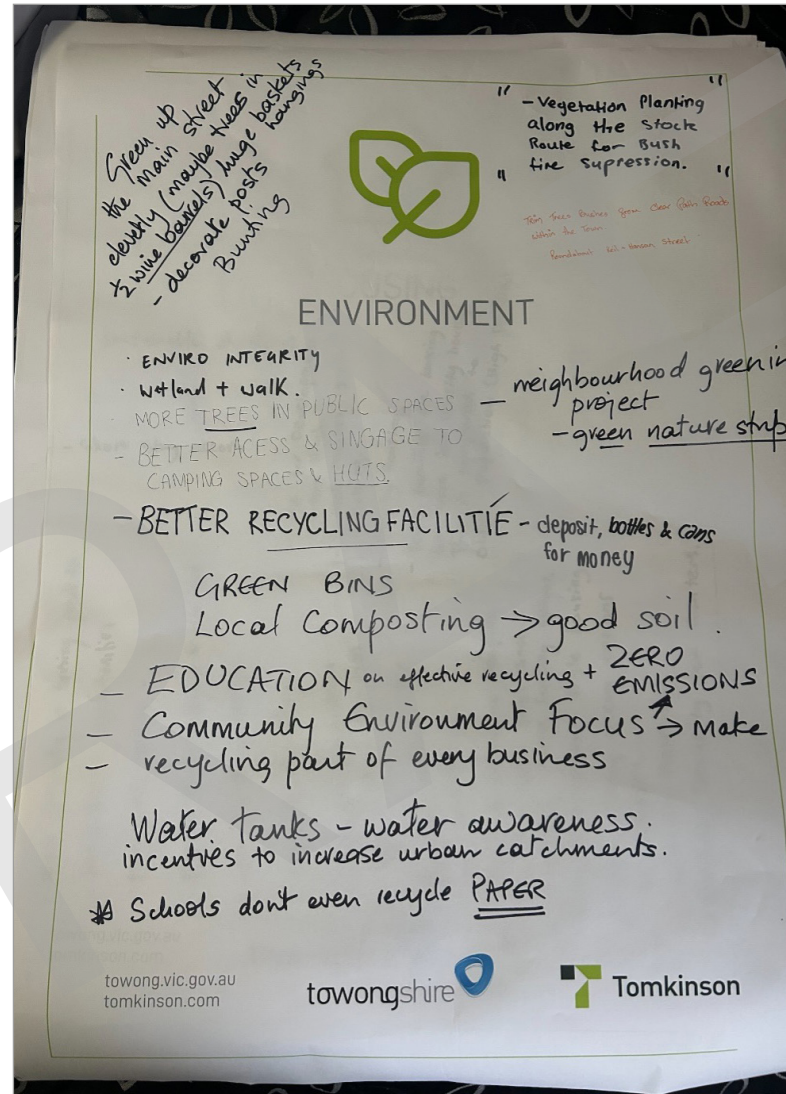 Green up
the main street
cleverly (maybe trees in
½ wine barrels) huge baskets
hangings
- decorate posts
Bunting
" - Vegetation Planting "
along the Stock
Route for Bush
" fire supression. "
Trim Trees Bushes from
within the Town
Roundabout Street
ENVIRONMENT
· ENVIRO INTEGRITY
· Wetland + walk.
· MORE TREES IN PUBLIC SPACES
- BETTER ACESS & SINGAGE TO
CAMPING SPACES & HUTS.
- neighbourhood greenin
project
- green nature strip
- BETTER RECYCLING FACILITIE - deposit, bottles & cans
for money
GREEN BINS
Local Composting → good soil.
- EDUCATION on effective recycling + ZERO
EMISSIONS
- Community Environment Focus → Make
- recycling part of every business
Water tanks - water awareness.
incentives to increase urban catchments.
* Schools dont even recycle PAPER
towong.vic.gov.au
tomkinson.com
towongshire
Tomkinson